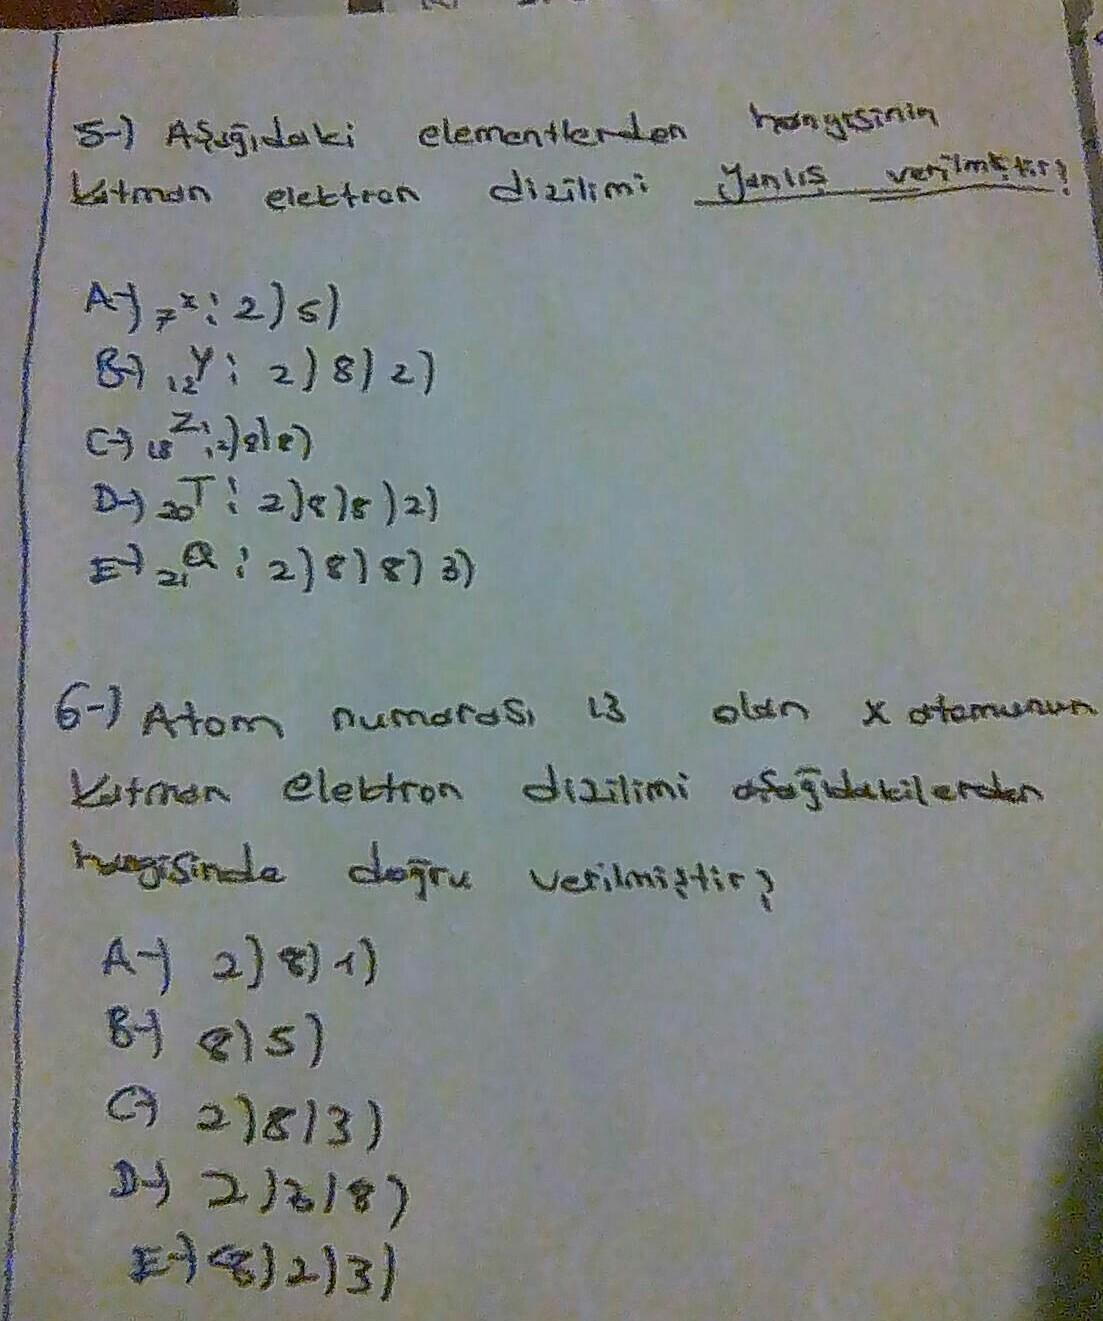 5-) Aşağıdaki elementlerden hangisinin
katman elektron dizilimi yanlış verilmiştir?
A-) 7X: 2) 5)
B-) 12Y: 2) 8) 2)
C-) 18Z: 2) 8) 8)
D-) 20T: 2) 8) 8) 2)
E-) 21Q: 2) 8) 8) 3)
6-) Atom numarası 13 olan X atomunun
katman elektron dizilimi aşağıdakilerden
hangisinde doğru verilmiştir?
A-) 2) 8) 1)
B-) 8) 5)
C-) 2) 8) 3)
D-) 2) 3) 8)
E-) 8) 2) 3)